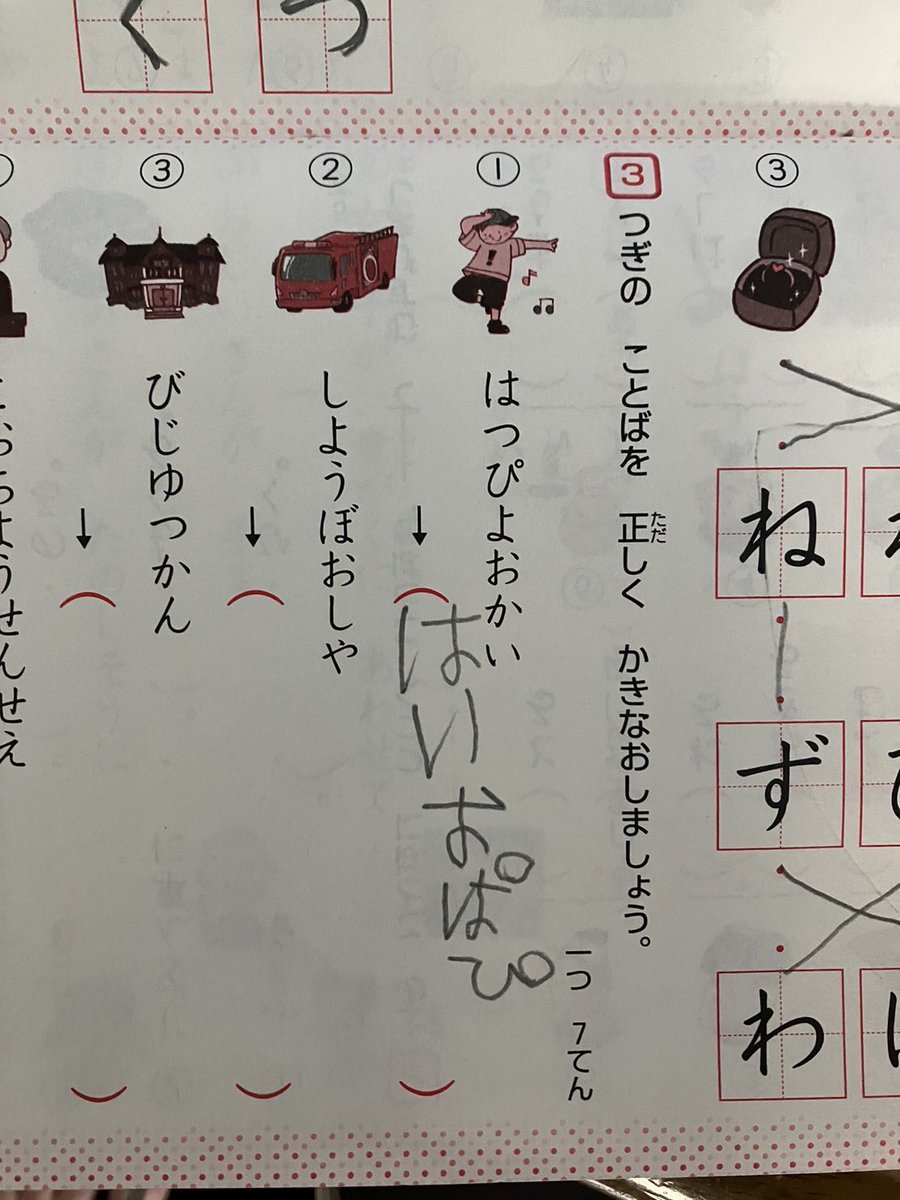 く
つ
③
ね
ず
わ
3 つぎの ことばを 正しく かきなおしましょう。
ただ
一つ 7てん
① はつぴよおかい
↓(はいおぱぴ)
② しようぼおしや
↓( )
③ びじゆつかん
↓( )
おちようせんせえ